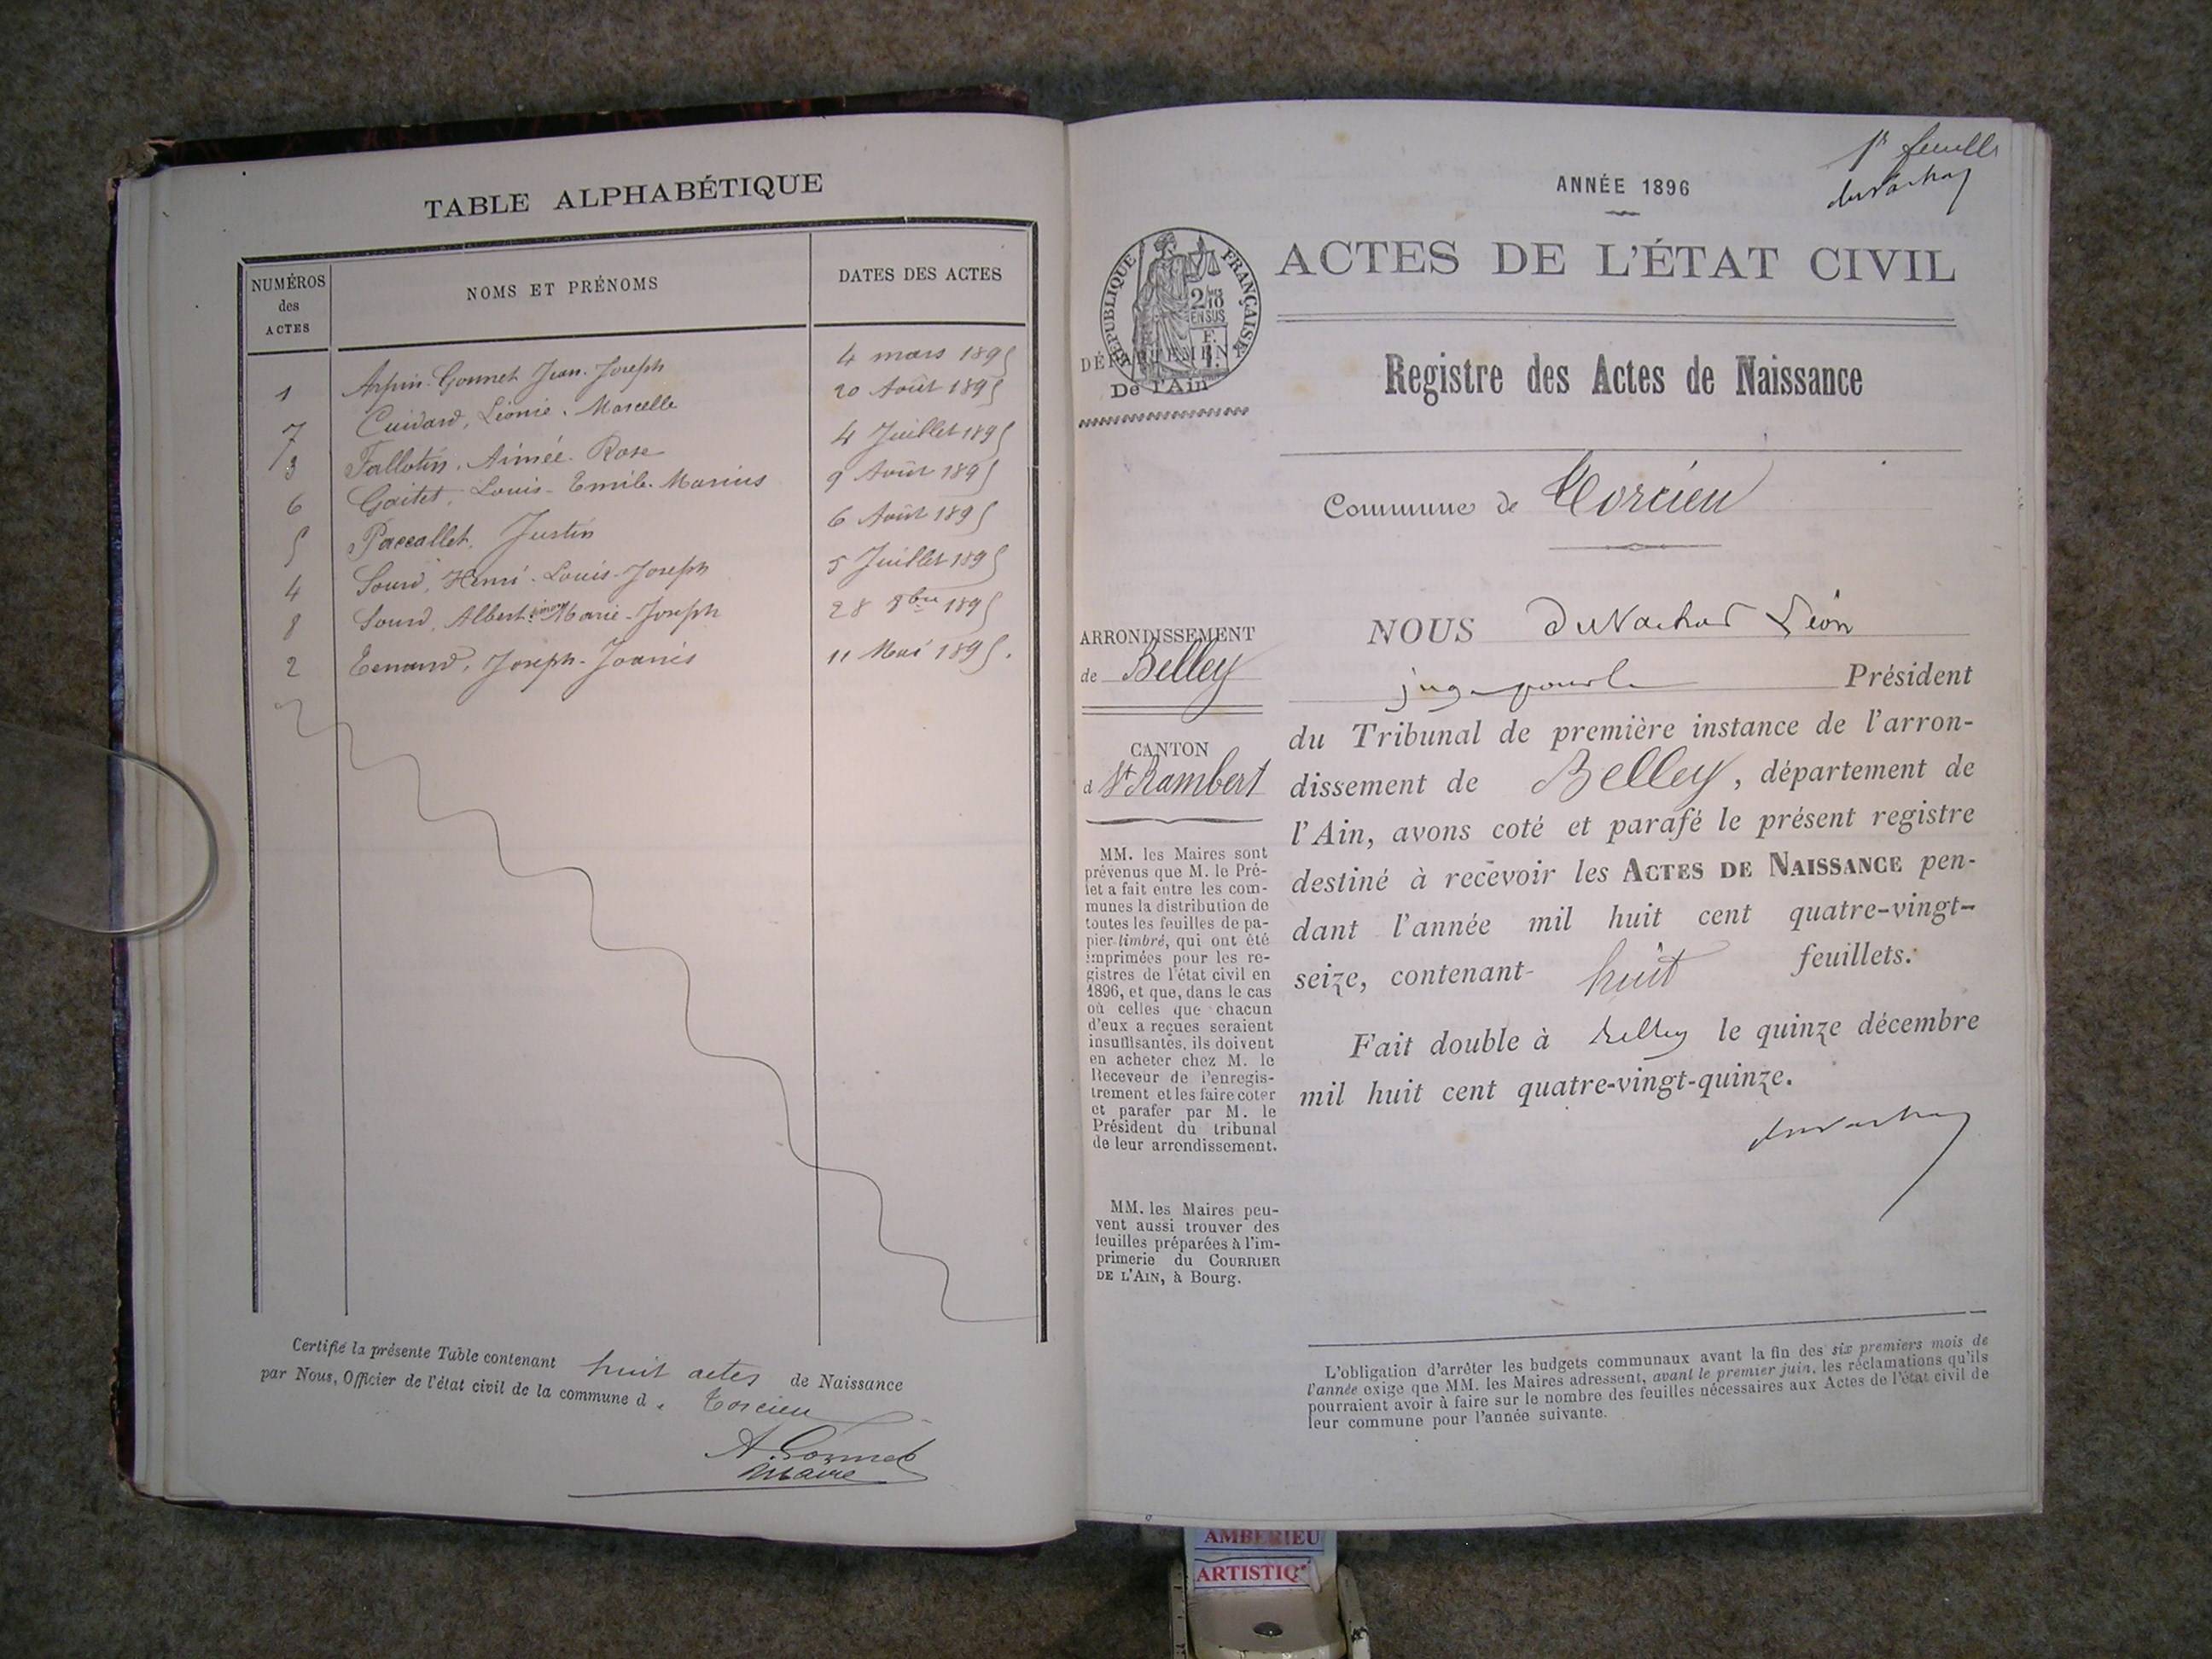 TABLE ALPHABÉTIQUE
NUMÉROS des ACTES
NOMS ET PRÉNOMS
DATES DES ACTES
1 Arpin-Gonnet Jean-Joseph 4 mars 1895
7 Cuidard, Léonie-Marcelle 20 Août 1895
3 Fallotin, Aimée-Rose 4 Juillet 1895
6 Goitet, Louis-Emile-Marius 9 Août 1895
5 Paccallet, Justin 6 Août 1895
4 Sourd, Henri-Louis-Joseph 5 Juillet 1895
8 Sourd, Albert-Marie-Joseph 28 8bre 1895
2 Tenand, Joseph-Joanis 11 Mai 1895.
Certifié la présente Table contenant huit actes de Naissance
par Nous, Officier de l'état civil de la commune d. Torcieu
A. Gonnet
Maire
1r feuille
ANNÉE 1896
ACTES DE L'ÉTAT CIVIL
RÉPUBLIQUE FRANÇAISE
DÉPARTEMENT
De l'Ain
Registre des Actes de Naissance
Commune de Torcieu
ARRONDISSEMENT
de Belley
CANTON
d St Rambert
MM. les Maires sont
prévenus que M. le Pré-
fet a fait entre les com-
munes la distribution de
toutes les feuilles de pa-
pier timbré, qui ont été
imprimées pour les re-
gistres de l'état civil en
1896, et que, dans le cas
où celles que chacun
d'eux a reçues seraient
insuffisantes, ils doivent
en acheter chez M. le
Receveur de l'enregis-
trement et les faire coter
et parafer par M. le
Président du tribunal
de leur arrondissement.
MM. les Maires peu-
vent aussi trouver des
feuilles préparées à l'im-
primerie du COURRIER
DE L'AIN, à Bourg.
NOUS Duvachat Léon
juge pour le Président
du Tribunal de première instance de l'arron-
dissement de Belley, département de
l'Ain, avons coté et parafé le présent registre
destiné à recevoir les ACTES DE NAISSANCE pen-
dant l'année mil huit cent quatre-vingt-
seize, contenant huit feuillets.
Fait double à Belley le quinze décembre
mil huit cent quatre-vingt-quinze.
L'obligation d'arrêter les budgets communaux avant la fin des six premiers mois de
l'année exige que MM. les Maires adressent, avant le premier juin, les réclamations qu'ils
pourraient avoir à faire sur le nombre des feuilles nécessaires aux Actes de l'état civil de
leur commune pour l'année suivante.
AMBERIEU
ARTISTIQ